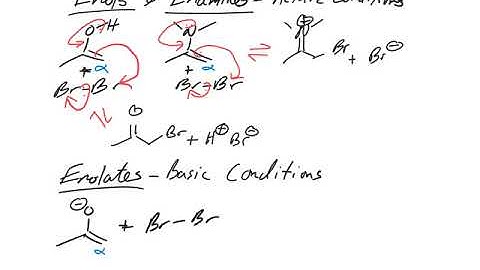 Enols & Enamines - Acidic Conditions
O-H N ⊕
α α Br + Br⊖
+ +
Br-Br Br-Br
O
Br + H⊕ Br⊖
Enolates - Basic Conditions
⊖O + Br-Br
α